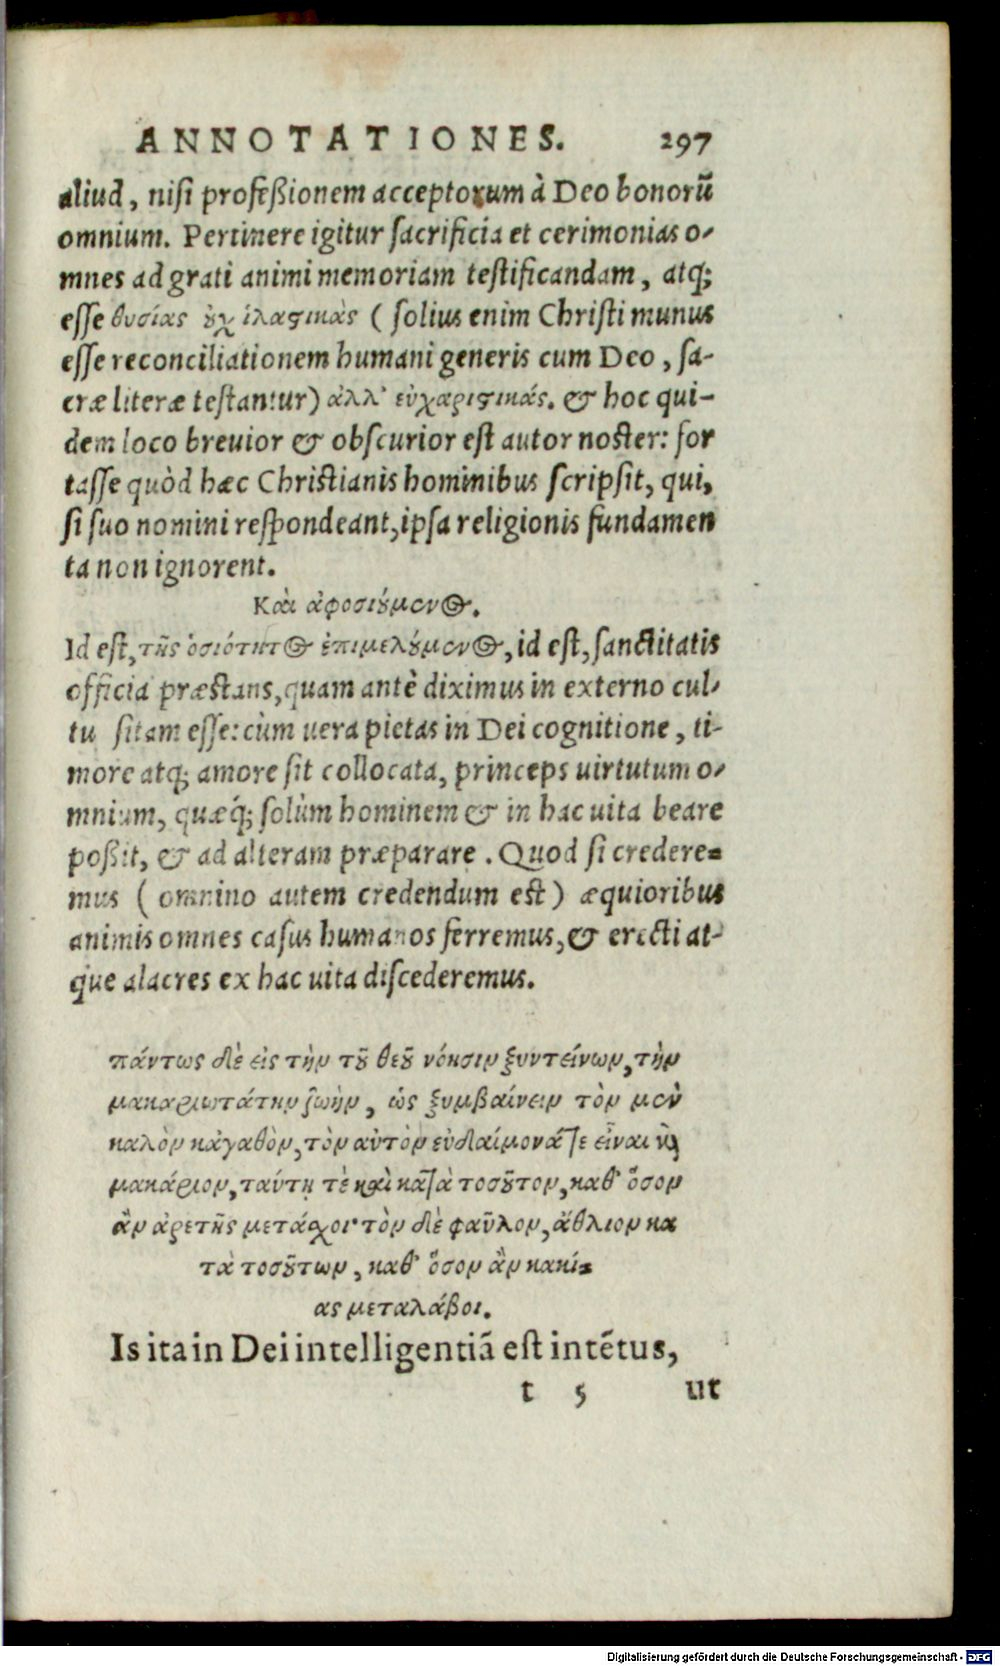 ANNOTATIONES. 297
aliud, nisi profeßionem acceptorum à Deo bonorũ
omnium. Pertinere igitur sacrificia et cerimonias o-
mnes ad grati animi memoriam testificandam, atq;
esse θυσίας ȣ̓χ ἱλαϛικὰς ( solius enim Christi munus
esse reconciliationem humani generis cum Deo, sa-
cræ literæ testantur) ἀλλ' εὐχαριϛικάς. & hoc qui-
dem loco breuior & obscurior est autor noster: for
tasse quòd hæc Christianis hominibus scripsit, qui,
si suo nomini respondeant, ipsa religionis fundamen
ta non ignorent.
Καὶ ἀφοσιȣ́μενος.
Id est, τῆς ὁσιότητος ἐπιμελȣ́μενος, id est, sanctitatis
officia præstans, quam antè diximus in externo cul-
tu sitam esse: cùm uera pietas in Dei cognitione, ti-
more atq; amore sit collocata, princeps uirtutum o-
mnium, quæq́; solùm hominem & in hac uita beare
poßit, & ad alteram præparare. Quod si credere-
mus ( omnino autem credendum est ) æquioribus
animis omnes casus humanos ferremus, & erecti at-
que alacres ex hac uita discederemus.
πάντως δὲ εἰς τὴν τȣ͂ θεȣ͂ νόησιν ξυντείνων, τὴν
μακαριωτάτην ζωὴν, ὡς ξυμβαίνειν τὸν μὲν
καλὸν κἀγαθὸν, τὸν αὐτὸν εὐδαίμονά τε εἶναι ϗ
μακάριον, ταύτῃ τὲ καὶ κατὰ τοσȣ͂τον, καθ' ὅσον
ἂν ἀρετῆς μετάχοι· τὸν δὲ φαῦλον, ἄθλιον κα
τὰ τοσȣ͂των, καθ' ὅσον ἂν κακί-
ας μεταλάβοι.
Is ita in Dei intelligentiã est intẽtus,
t 5 ut
Digitalisierung gefördert durch die Deutsche Forschungsgemeinschaft - DFG